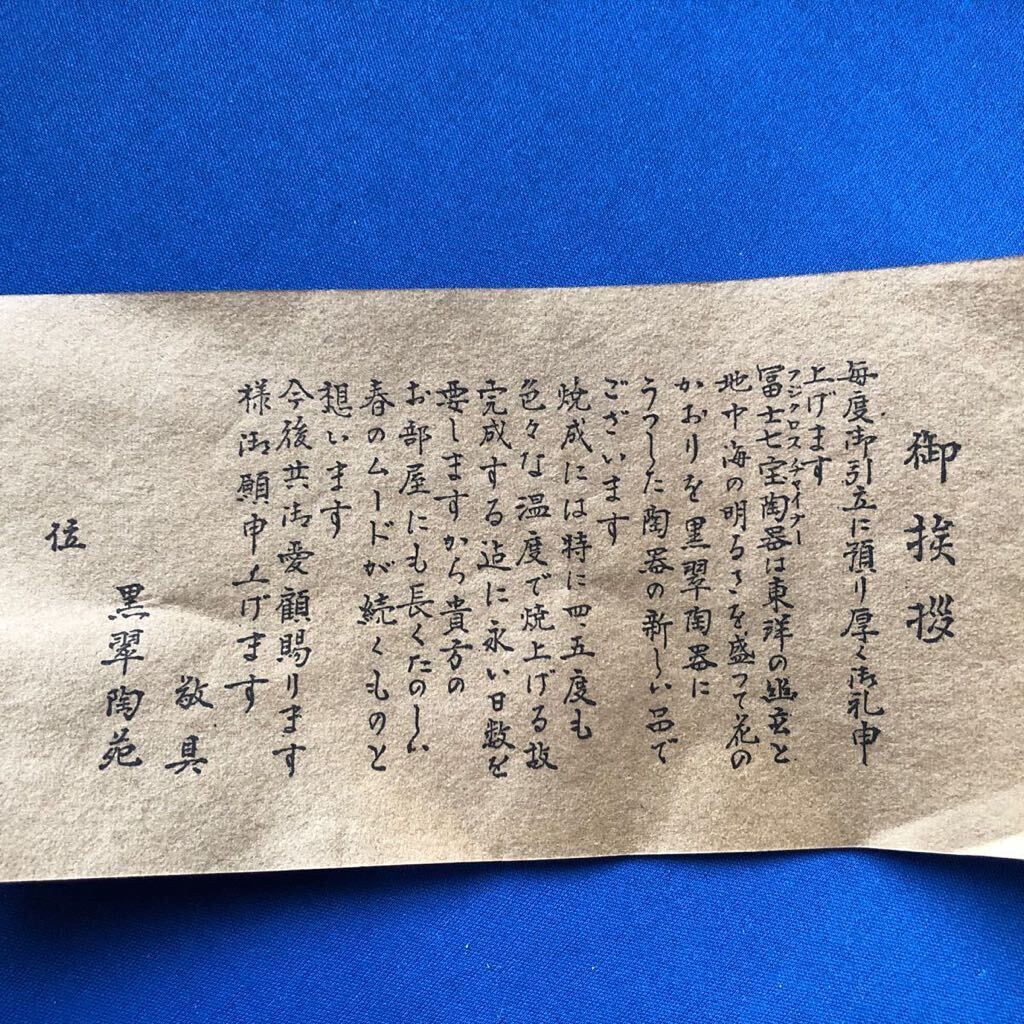 御挨拶
毎度御引立に預り厚く御礼申
上げます
フジクロス チャイナー
冨士七宝陶器は東洋の幽玄と
地中海の明るさを盛つて花の
かおりを黒翠陶器に
うつした陶器の新しい品で
ございます
焼成には特に四、五度も
色々な温度で焼上げる故
完成する迠に永い日数を
要しますから貴方の
お部屋にも長くたのしい
春のムードが続くものと
想います
今後共御愛顧賜ります
様御願申上げます
敬具
黒翠陶苑
位